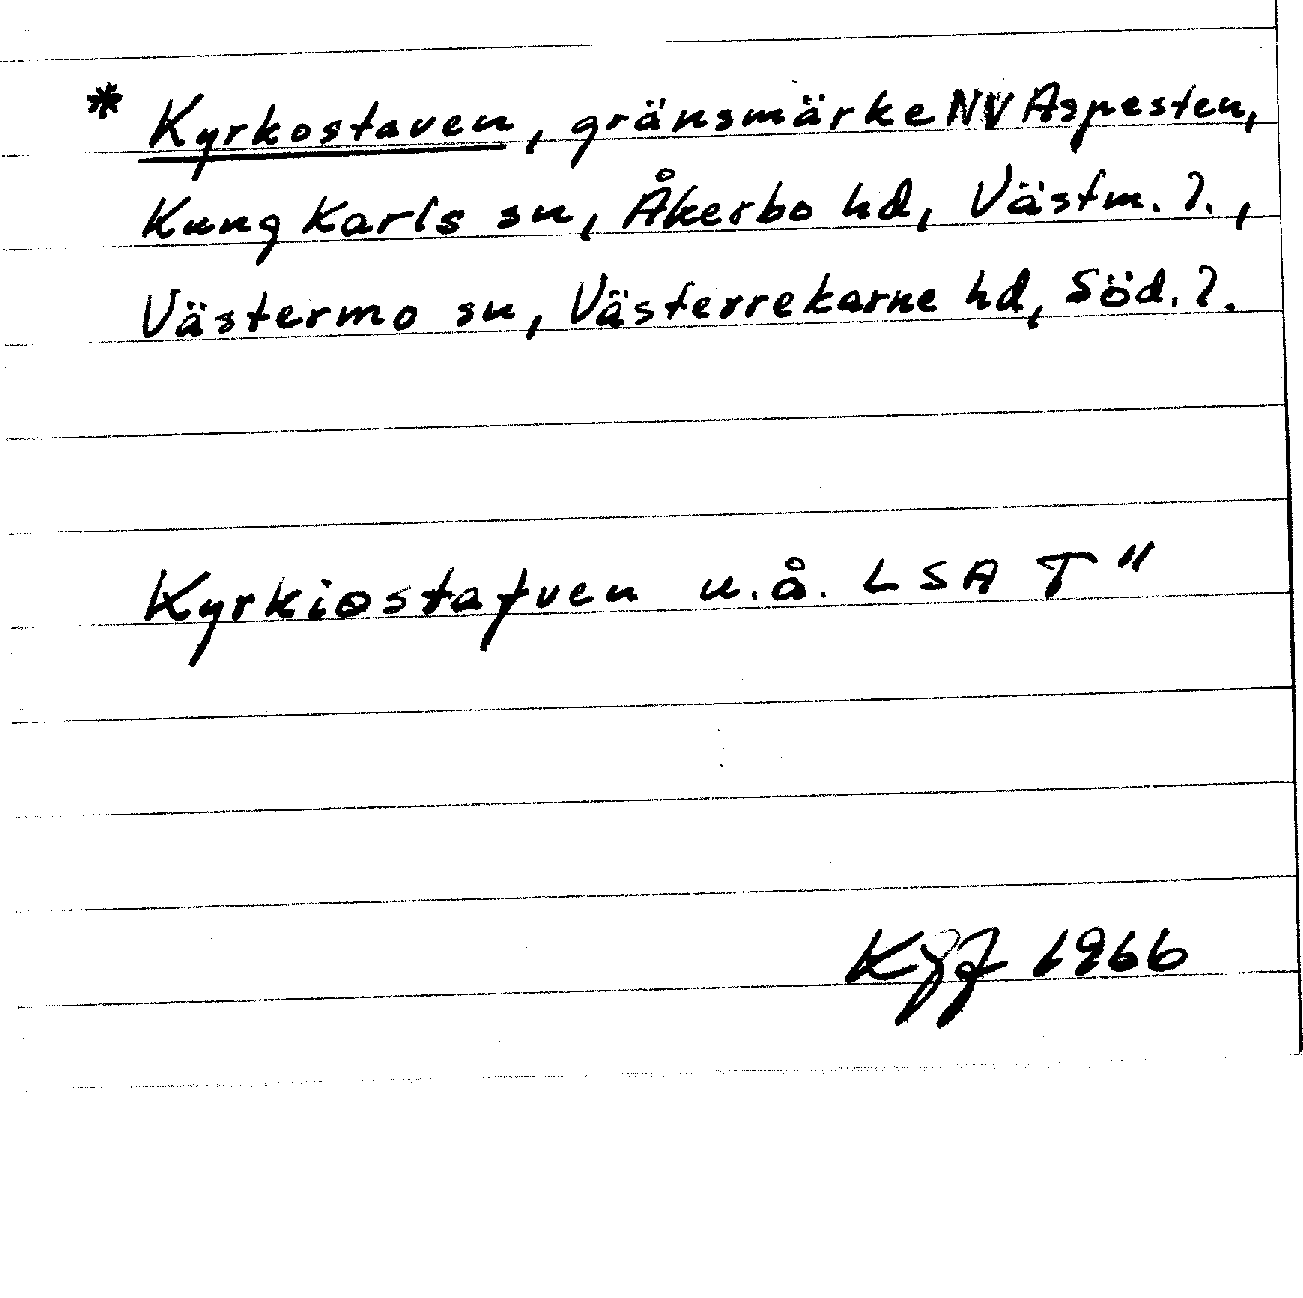 * Kyrkostaven, gränsmärke NV Aspesten,
Kung Karls sn, Åkerbo hd, Västm. l.,
Västermo sn, Västerrekarne hd, Söd. l.
Kyrkiostafven u.å. LSA T"
1966